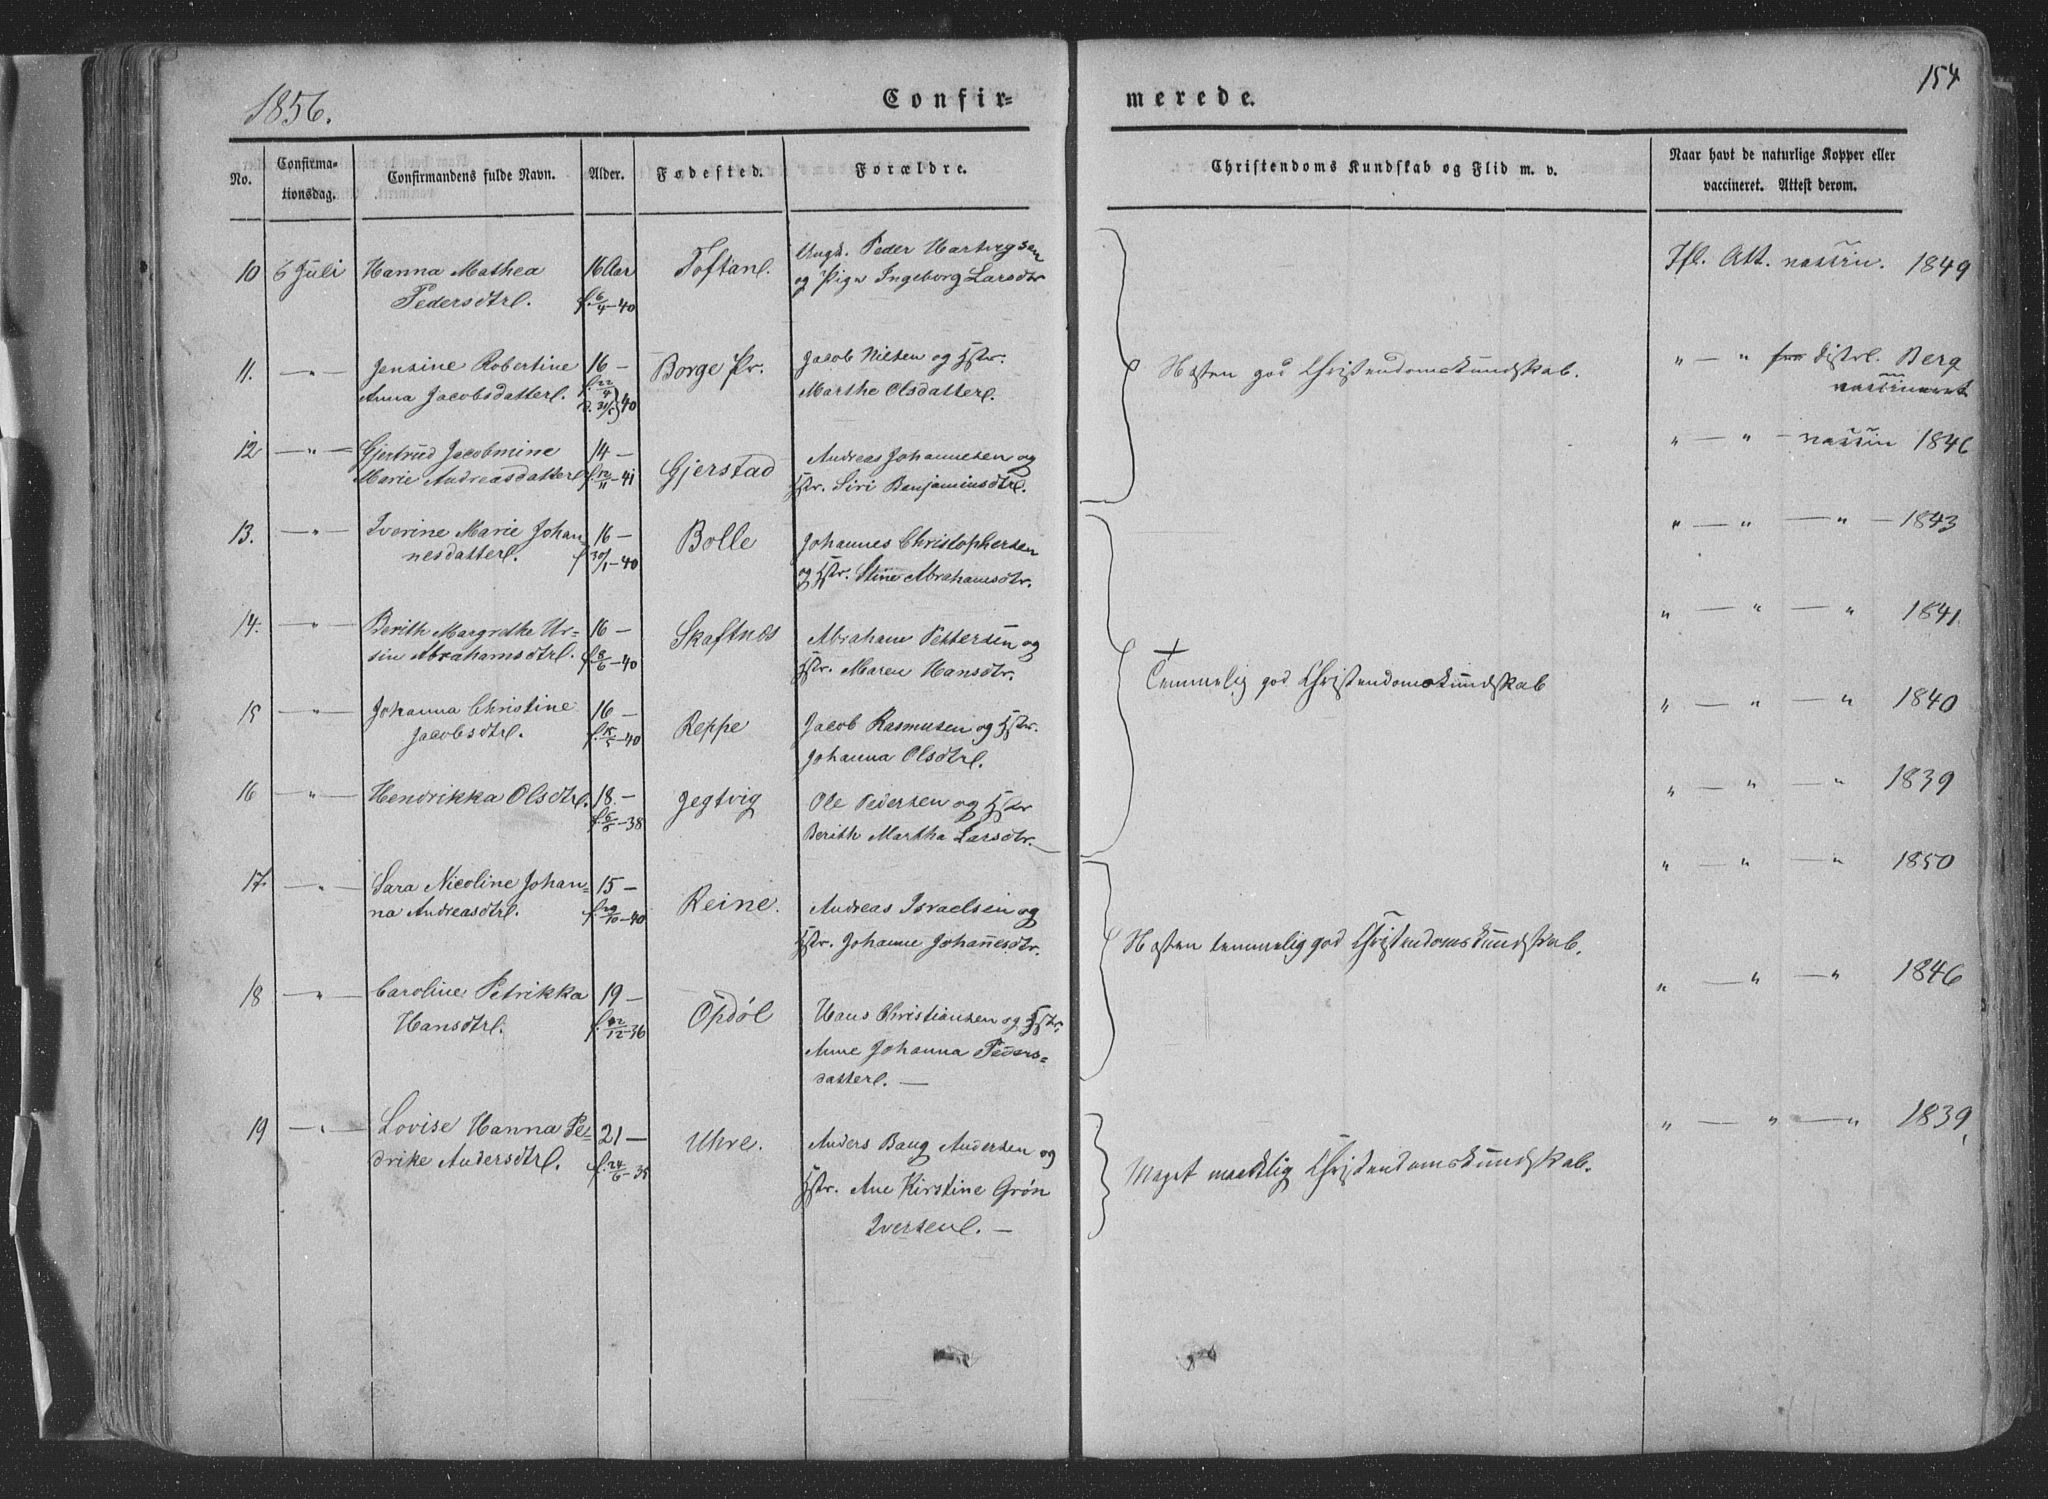 1856.
Confir=
merede.
154
No.
Confirma-
tionsdag.
Confirmandens fulde Navn.
Alder.
Fødested.
Forældre.
Christendoms Kundskab og Flid m. v.
Naar havt de naturlige Kopper eller
vaccineret. Attest derom.
10 6 Juli Hanna Mathea 16 Aar Toftan. Ungk. Peder Hartvigsen
Pedersdtr. f. 6/4-40 og Pige Ingeborg Larsdtr
Ifl. Att. vaccin. 1849
11. — " — Jensine Robertine 16 — Borge Pr. Jacob Nilsen og Hstr.
Anna Jacobsdatter. f. 22/4 40 Marthe Olsdatter.
Næsten god Christendomskundskab.
" — " fra Distrl. Berg
vaccineret
12 — " — Gjertrud Jacobmine 14 — Gjerstad Andreas Johannesen og
Marie Andreasdatter f. 12/11-41 Hstr. Siri Benjaminsdtr.
" — " — vaccin 1846
13. — " — Iverine Marie Johan= 16 — Bolle Johannes Christophersen
nesdatter. f. 30/1-40 og Hstr. Stine Abrahamsdtr.
" — " — " — 1843
14. — " — Berith Margrethe Ur= 16 — Skaftnes Abraham Pettersen og
sin Abrahamsdtr. f. 8/6-40 Hstr. Maren Hansdtr.
" — " — " 1841.
Temmelig god Christendomskundskab
15 — " — Johanna Christine 16 — Reppe Jacob Rasmusen og Hstr.
Jacobsdtr. f. 15/5-40 Johanna Olsdtr.
" — " — " 1840
16 — " — Hendrikka Olsdtr. 18. — Jegtvig Ole Pedersen og Hstr
f. 6/6-38 Berith Martha Larsdtr.
" — " — " 1839
17. — " — Sara Nicoline Johan= 15 — Reine. Andreas Israelsen og
na Andreasdtr. f. 29/10-40 Hstr. Johanne Johannesdtr.
" — " — " 1850
Næsten temmelig god Christendomskundskab.
18 — " — Caroline Petrikka 19 — Opdøl Hans Christiansen og Hstr.
Hansdtr. f. 22/12-36 Anne Johanna Peders=
datter. —
" — " — " 1846
19 — " — Lovise Hanna Pe= 21 — Uhre. Anders Baug Andersen og
drike Andersdtr. f. 24/6-35 Hstr. Ane Kirstine Grøn
Iversen. —
Meget maadelig Christendomskundskab.
" — " — " 1839.